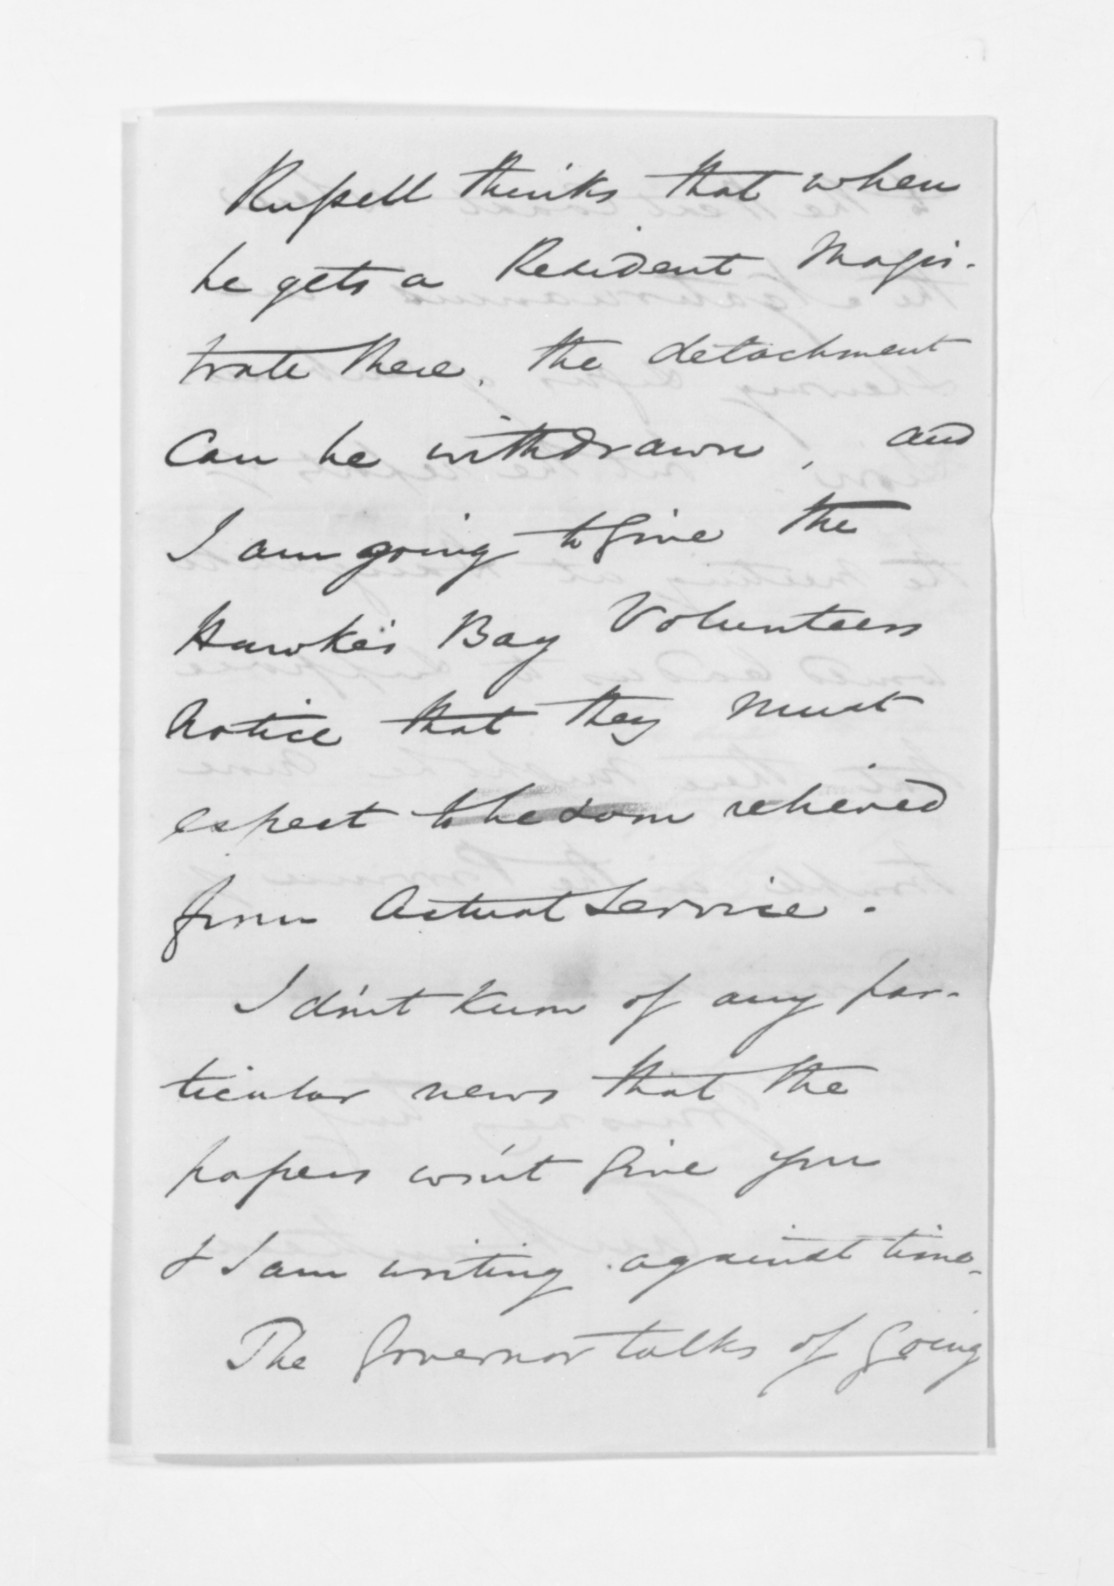 Russell thinks that when
he gets a Resident Magis-
trate there, the detachment
can be withdrawn, and
I am going to give the
Hawke's Bay Volunteers
notice that they must
expect to be soon relieved
from actual service.
I don't know of any par-
ticular news that the
papers won't give you
& I am writing against time.
The Governor talks of going